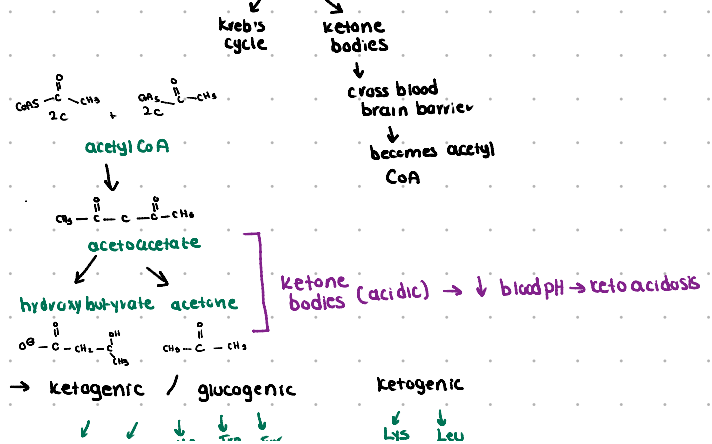 kreb's
cycle
ketone
bodies
cross blood
brain barrier
becomes acetyl
CoA
CoAS
O
C
CH3
2C
+
CoAS
O
C
CH3
2C
acetyl CoA
O
O
C
C
C
acetoacetate
hydroxybutyrate acetone
ketone
bodies (acidic) → ↓ blood pH → ketoacidosis
O
O
C
CH2
C
OH
CH3
O
CH3
C
CH3
→ ketogenic / glucogenic
ketogenic
Lys
Leu